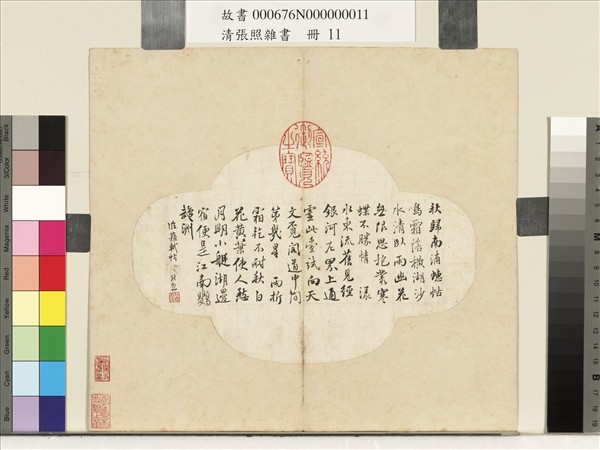 故書 000676N000000011
清張照雜書 冊 11
宣統御覽之寶
秋歸南浦蟪蛄
鳴霜落橫湖沙
水清臥雨幽花
無限思抱叢寒
蝶不勝情 漾
水東流舊見經
銀河左界上通
靈此臺試向天
文覓閣道中間
第幾星 雨折
霜乾不耐秋白
花黃葉使人愁
月明小艇湖邊
宿便是江南鸚
鵡洲
蘇軾帖
Black
3/Color
White
Magenta
Red
Yellow
Green
Cyan
Blue